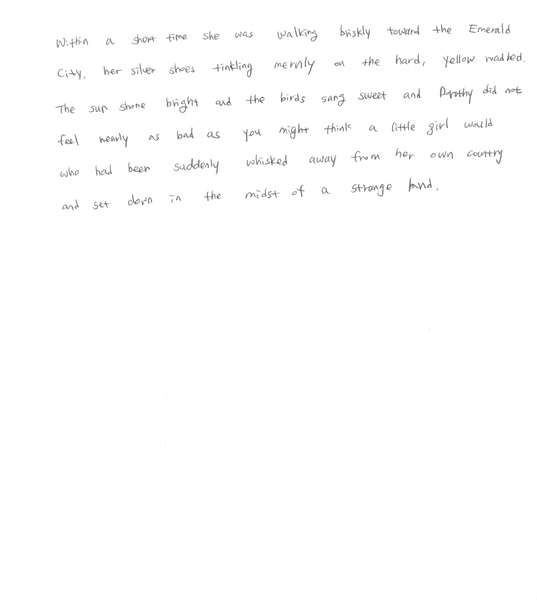 Within a short time she was walking briskly toward the Emerald
City, her silver shoes tinkling merrily on the hard, yellow roadbed.
The sun shone bright and the birds sang sweet and Dorothy did not
feel nearly as bad as you might think a little girl would
who had been suddenly whisked away from her own country
and set down in the midst of a strange land.